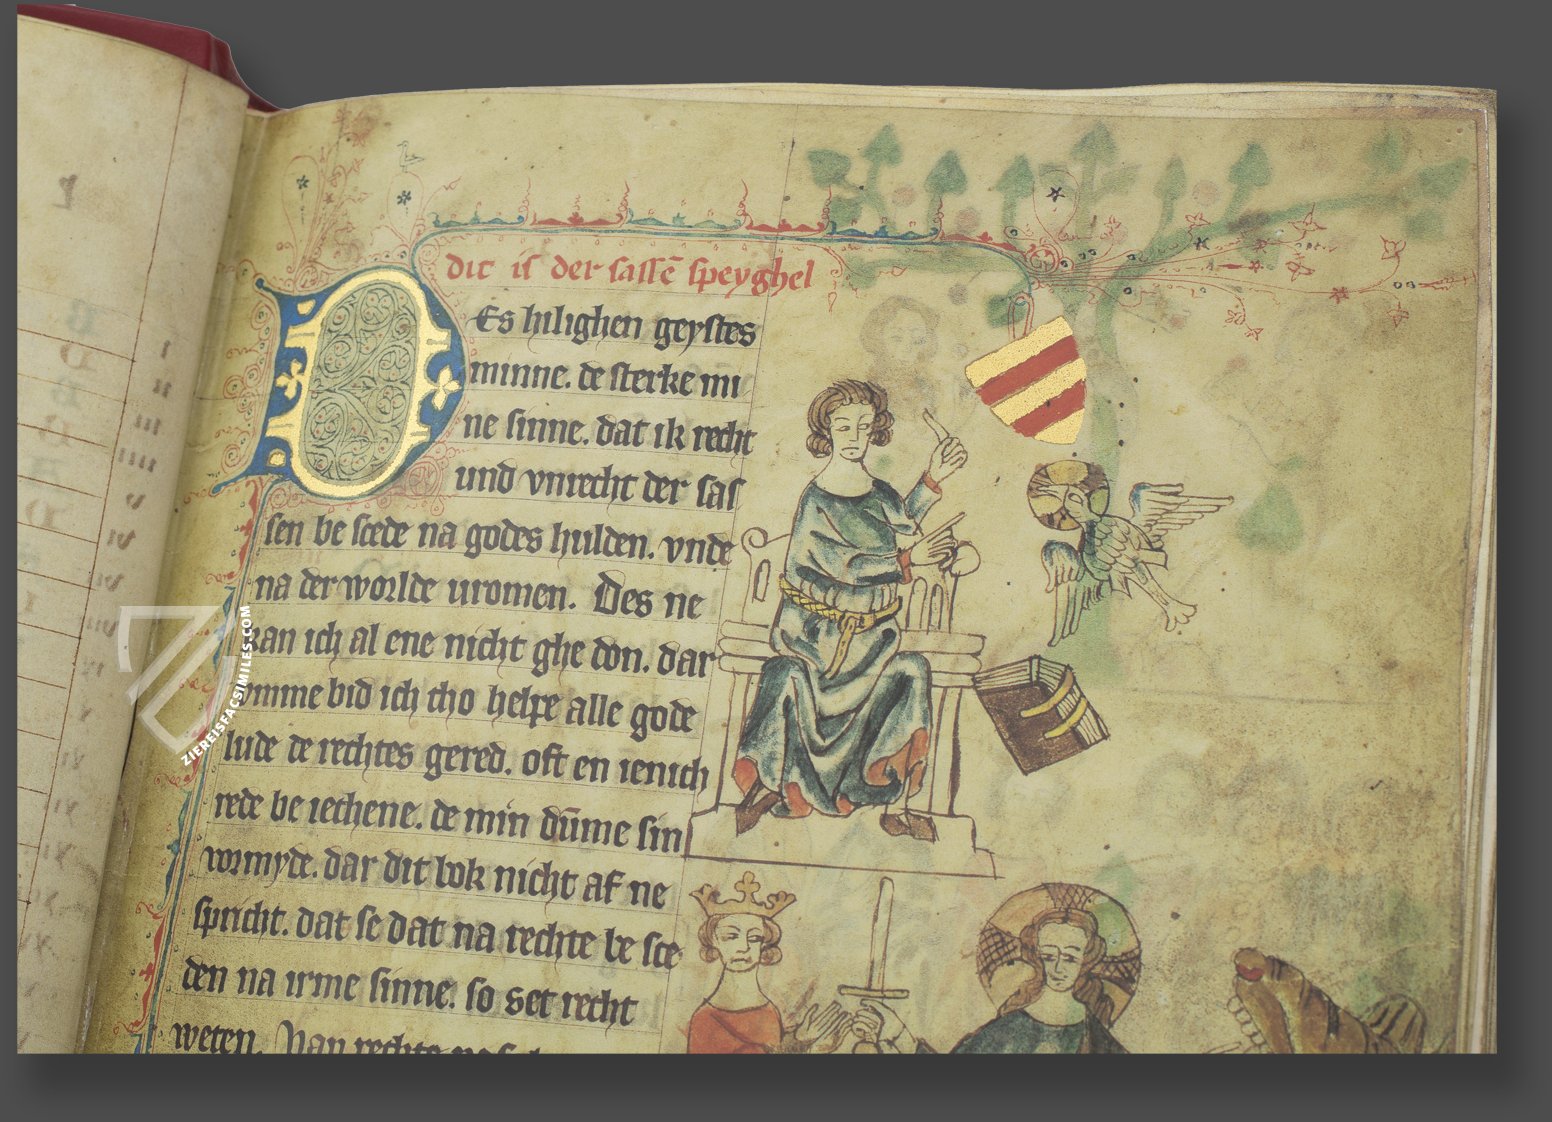 dit is der sassē speyghel
DEs hilighen geystes
minne. de sterke mi
ne sinne. dat ik recht
und vnrecht der sas
sen be scede na godes hulden. vnde
na der worlde uromen. Des ne
kan ich al ene nicht ghe don. dar
umme bid ich tho helpe alle gode
lude de rechtes gered. oft en ienich
rede be iechene. de min dūme sin
uormyde. dar dit bok nicht af ne
spricht. dat se dat na rechte be sce
den na irme sinne. so set recht
weten. Van rechte
ZIEREISFACSIMILES.COM